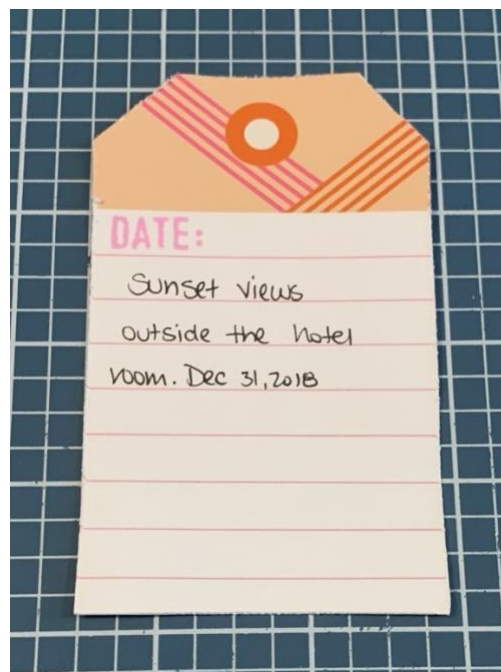 DATE:
Sunset views
outside the hotel
room. Dec 31, 2018